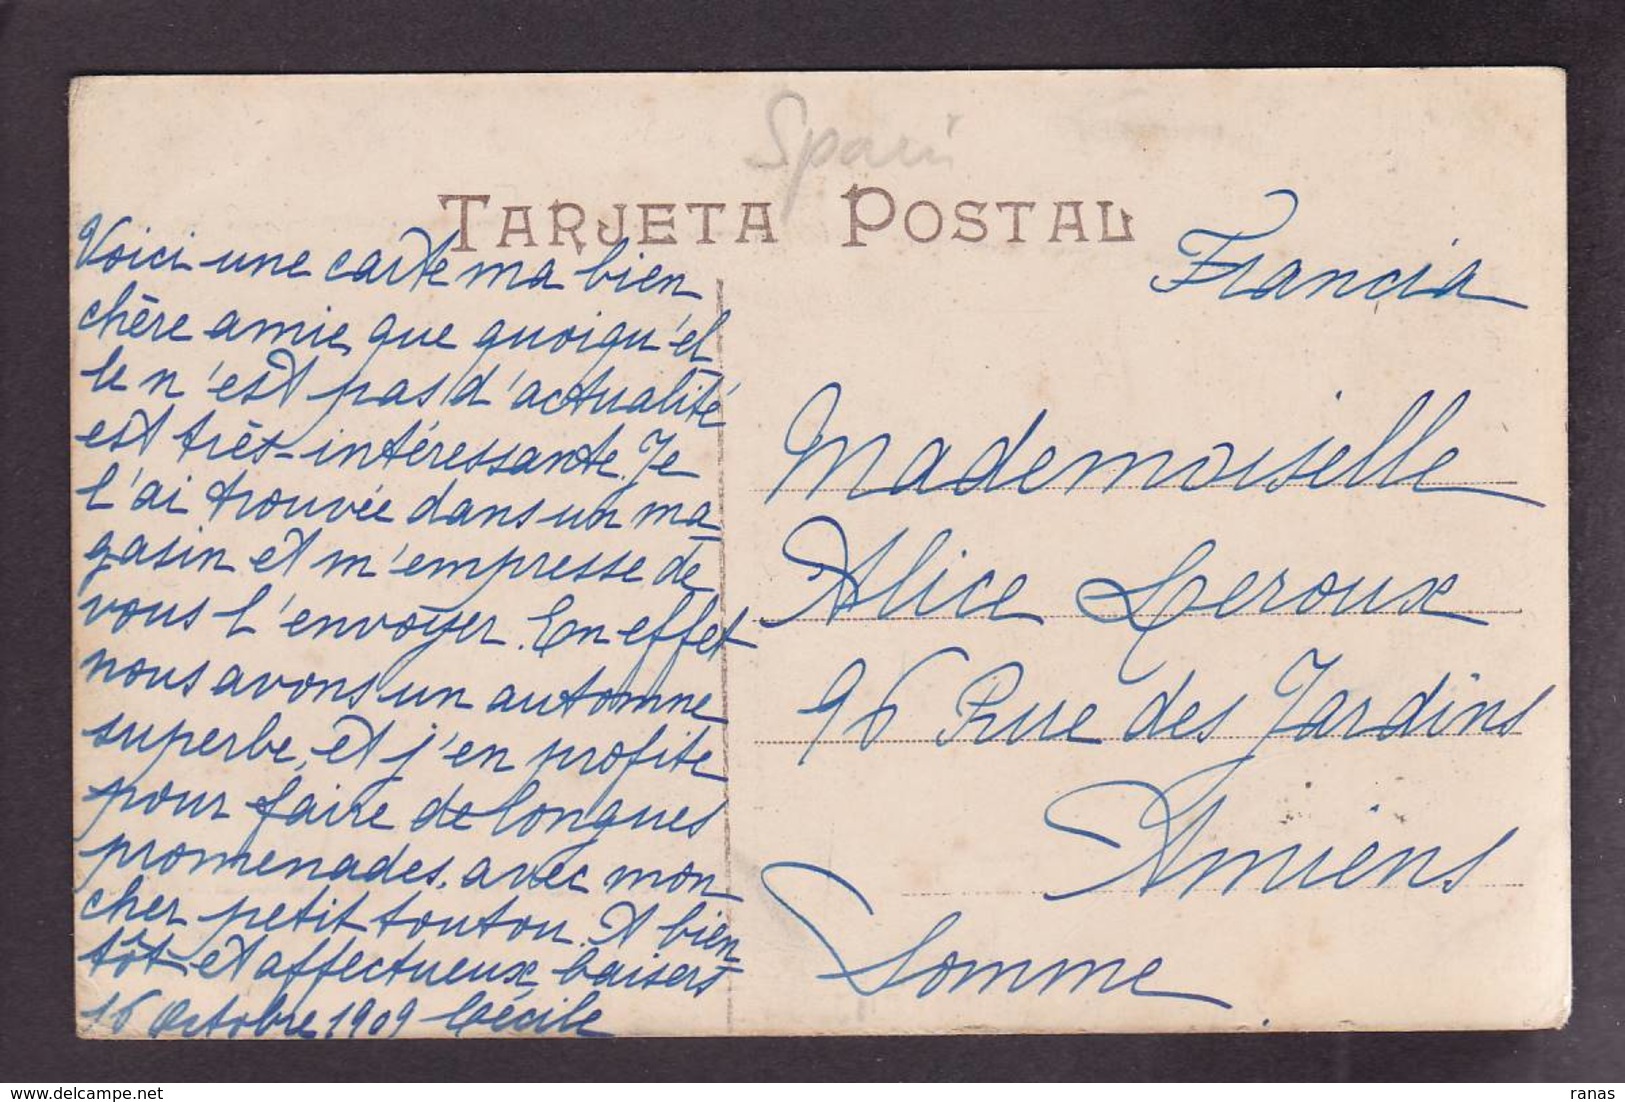 Spain
TARJETA POSTAL
Voici une carte ma bien
chère amie, que quoiqu'el
le n'est pas d'actualité
est très-intéressante. Je
l'ai trouvée dans un ma
gasin et m'empresse de
vous l'envoyer. En effet
nous avons un automne
superbe, et j'en profite
pour faire de longues
promenades, avec mon
cher petit toutou. A bien
tôt et affectueux baisers
16 Octobre 1909 Cécile
Francia
Mademoiselle
Alice Leroux
96 Rue des Jardins
Amiens
Somme.
delcampe.net
ranas